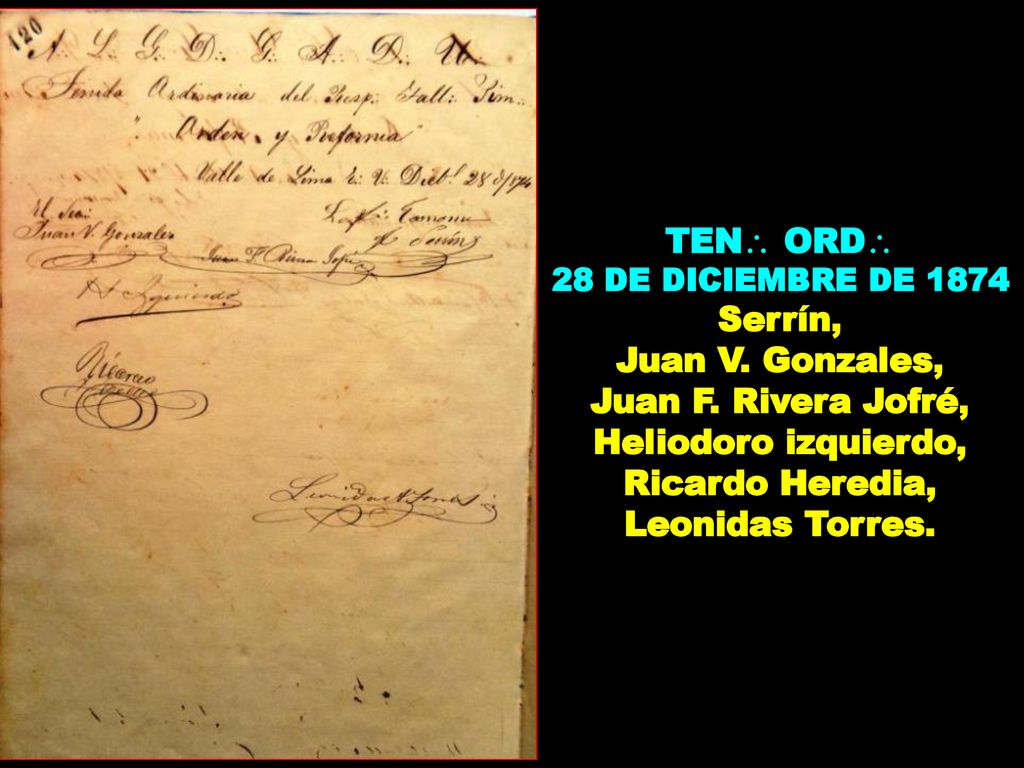 120
A∴ L∴ G∴ D∴ G∴ A∴ D∴ U∴
Tenida Ordinaria del Resp∴ Tall∴ Sim∴
"Orden y Reforma"
Valle de Lima E∴ V∴ 28
Juan V. Gonzales
Serrín
Juan F. Rivera Jofré
H Izquierdo
Ricardo
Leonidas Torres
TEN∴ ORD∴
28 DE DICIEMBRE DE 1874
Serrín,
Juan V. Gonzales,
Juan F. Rivera Jofré,
Heliodoro izquierdo,
Ricardo Heredia,
Leonidas Torres.